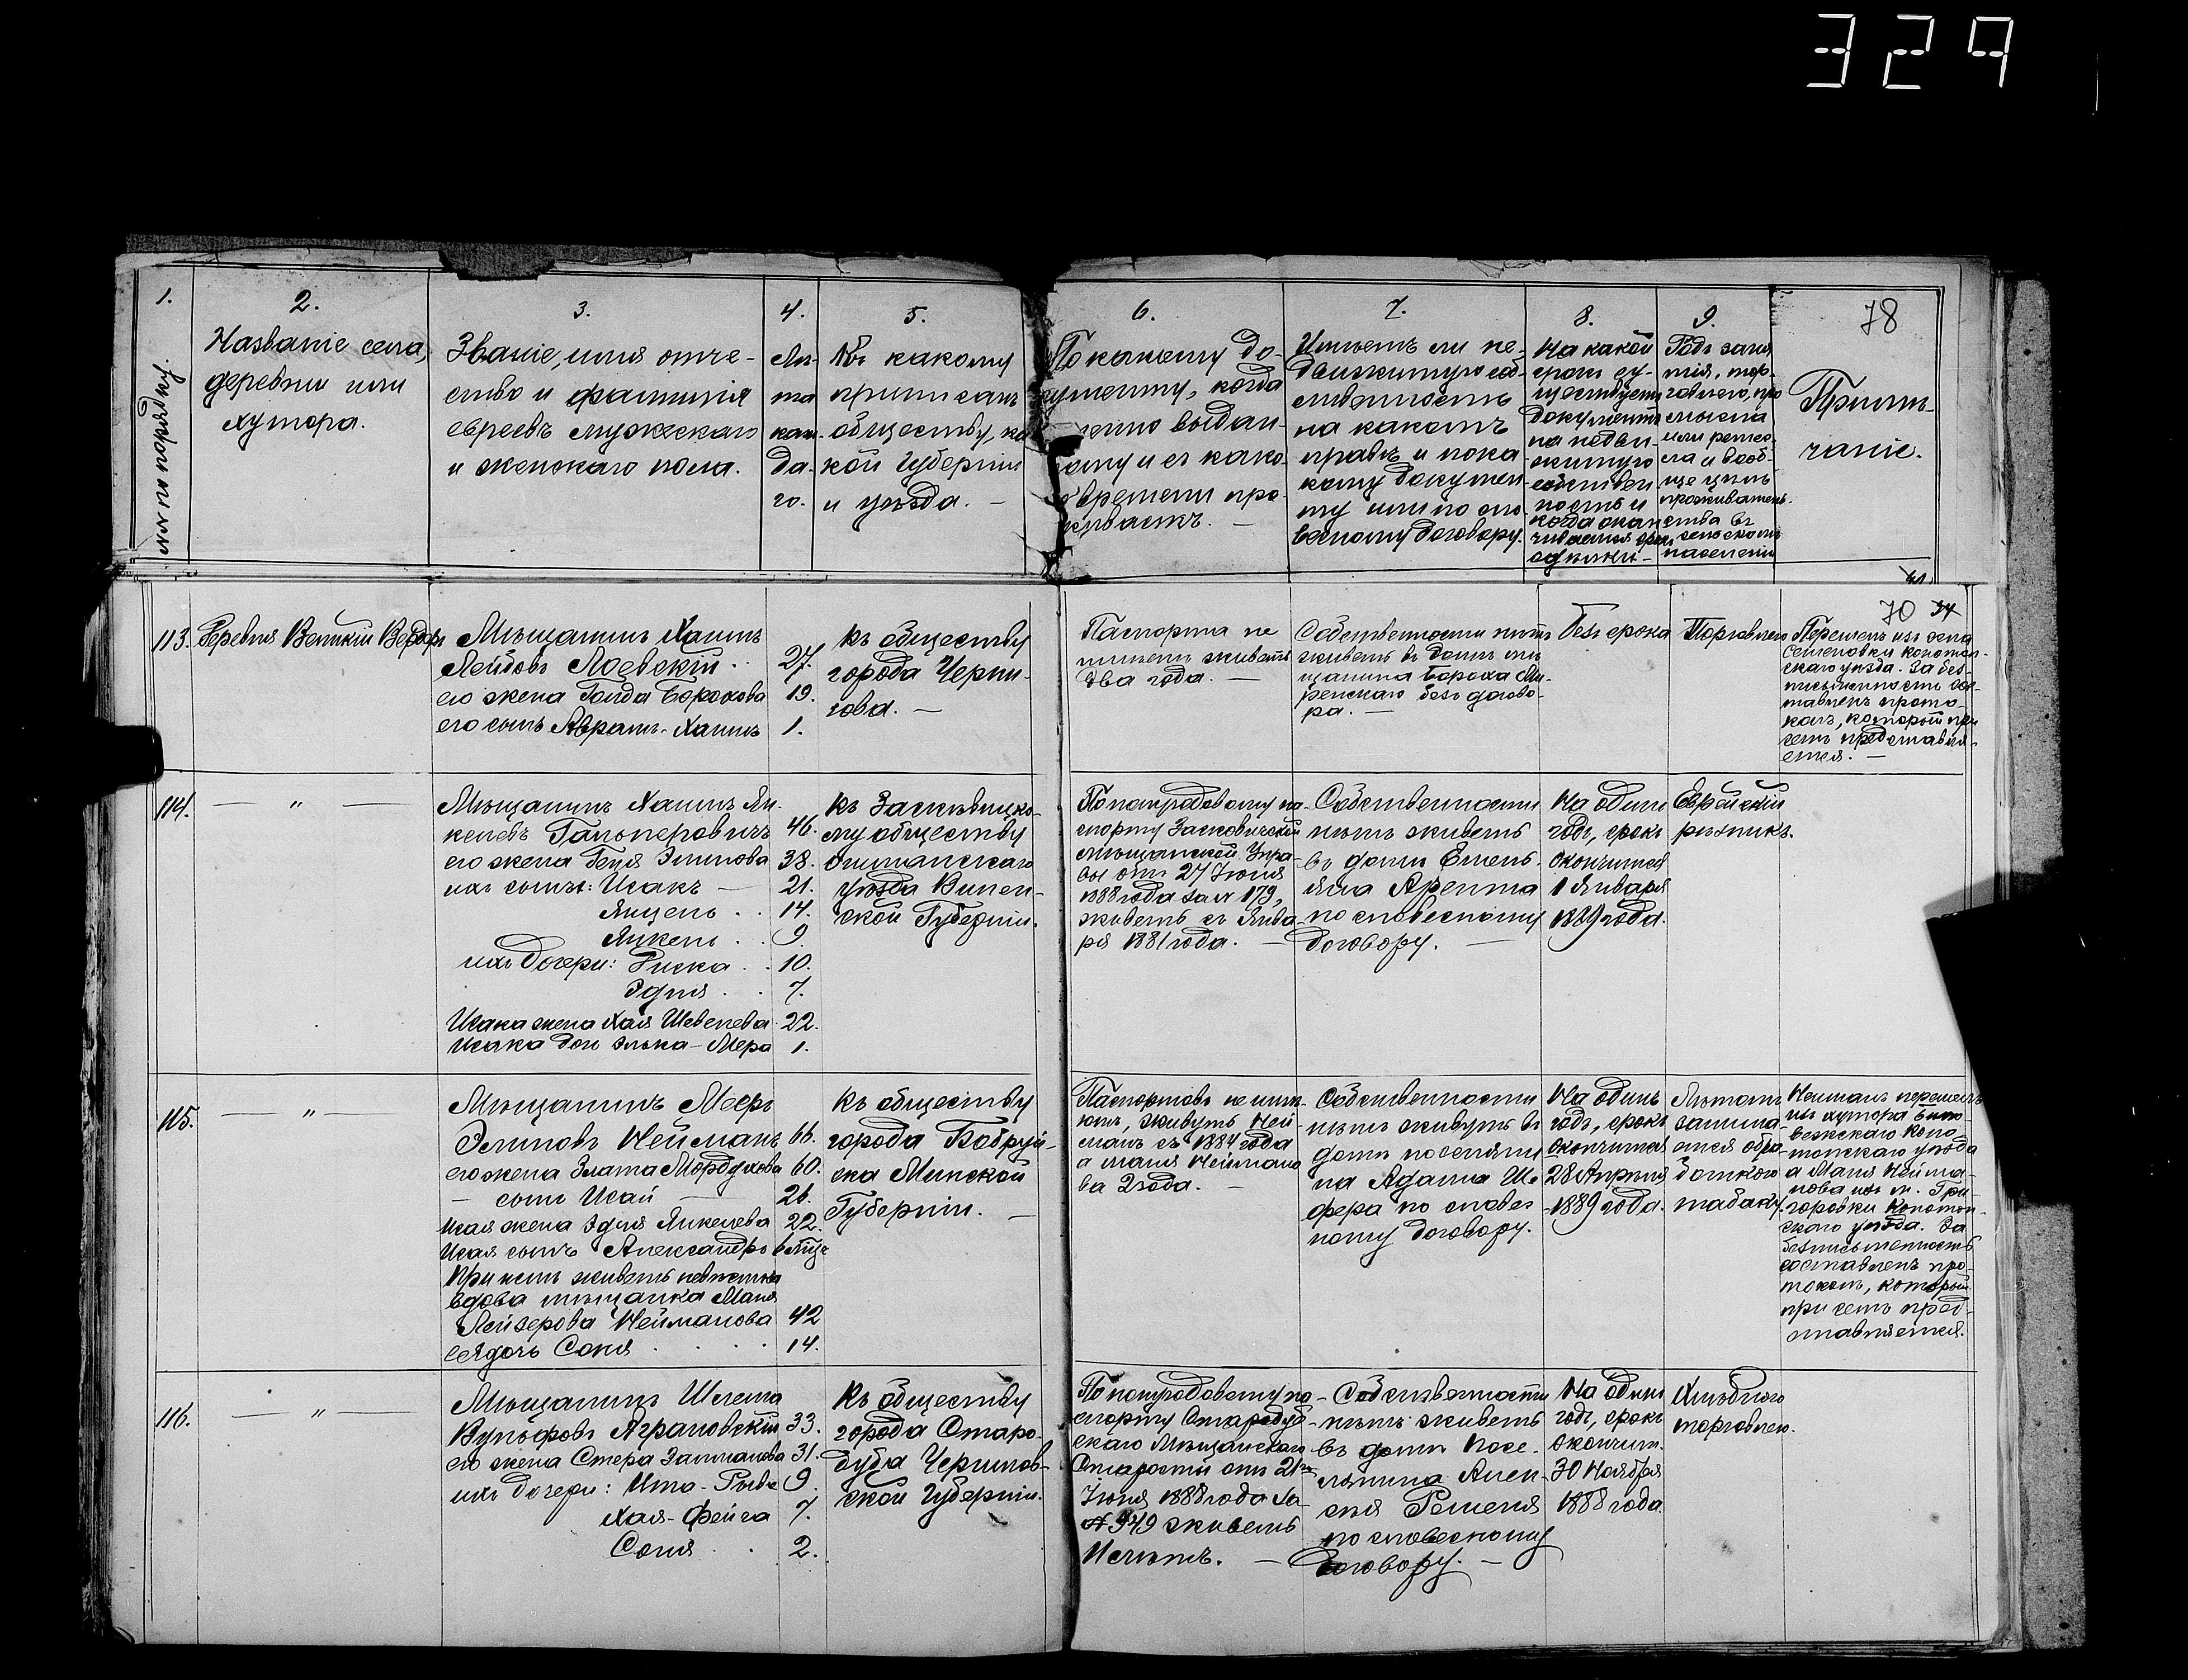 329
1.
№№ по порядку.
2.
Названіе села,
деревни или
хутора.
3.
Званіе, имя отче-
ство и фамилія
евреевъ мужескаго
и женскаго пола.
4.
Лѣ-
та
каж-
да-
го.
5.
Къ какому
приписанъ
обществу, ка
кой губерніи
и уѣзда. —
6.
По какому до-
кументу, когда
выдан-
ному и съ како-
времени про-
живаетъ. —
7.
Имѣетъ ли не-
движимую соб-
ственность
на какомъ
правѣ и пока
кому докумен
ту или по сло
весному договору.
8.
На какой
срокъ су-
ществуетъ
документъ
на недви-
жимую
собствен
ность и
когда окан
чивается срокъ
9.
Родъ заня
тія, тор-
говлею, про
мысла
или ремес-
ла и вооб-
ще цѣль
проживатель-
ства въ
сельскомъ
населеніи
78
Примѣ-
чаніе.
70 34
113. Деревня Великій
Мѣщанинъ Хаимъ
Лейбовъ Лоевскій . . 27.
его жена Голда Борохова 19.
его сынъ Абрамъ-Хаимъ 1.
Къ обществу
города Черни-
гова. —
Паспорта не
имѣетъ живетъ
два года. —
Собственности нѣтъ
живетъ въ домѣ мѣ
щанина Бороха
безъ догово-
ра. —
Безъ срока
Торговлею
Перешелъ изъ села
Семеновки конотоп-
скаго уѣзда. За без-
письменность сос-
тавленъ прото-
колъ, который при
семъ представля-
ется. —
114. — " —
Мѣщанинъ Хаимъ Ян-
келевъ Гальперовичъ 46.
его жена Геня Элинова 38.
ихъ сыны: Исакъ — 21.
. . 14.
Янкель . . 9.
ихъ дочери: Риска . . 10.
Эдля . . 7.
Исака жена Хая Шевелева 22.
Исака дочь Элька-Мера 1.
Къ
му обществу
Ошмянскаго
уѣзда Вилен-
ской Губерніи.
По полугодовому па-
спорту
Мѣщанской Упра-
вы отъ 27 Іюня
1888 года за № 179,
живетъ съ Янва-
ря 1881 года. —
Собственности
нѣтъ живетъ
въ домѣ Емель-
яна
по словесному
договору. —
На одинъ
годъ, срокъ
окончится
1 Января
1889 года.
Еврейскій
рѣзникъ.
115. — " —
Мѣщанинъ Мееръ
Элиновъ Нейманъ 66.
его жена Злата Мордухова 60.
— сынъ Исай — 26.
Исая жена Эдля Янкелева 22.
Исая сынъ Александръ 6 мѣц.
При немъ живетъ невѣстка
вдова мѣщанка Маня
Лейзерова Нейманова 42
ея дочь Соня . . . . 14.
Къ обществу
города Бобруй-
ска Минской
Губерніи. —
Паспортовъ не имѣ-
ютъ, живутъ Ней
манъ съ 1884 года
а Маня Неймано
ва 2 года. —
Собственности
нѣтъ живутъ въ
домѣ поселяни
на Адама Ше
фера по словес
ному договору.
На одинъ
годъ, срокъ
окончится
28 Апрѣля
1889 года.
Лѣтомъ
занима-
ется обра-
боткою
табаку.
Нейманъ перешелъ
изъ хутора
Коно-
топскаго уѣзда
а Маня Нейма-
нова изъ м. Гри-
горовки Конотоп-
скаго уѣзда. За
безписьменность
составленъ про-
токолъ, который
при семъ пред-
ставляется.
116. — " —
Мѣщанинъ Шлема
Вульфовъ Аграновскій 33.
его жена Стера Залманова 31.
ихъ дочери: Ита-Рыва 9.
Хая-Фейга 7.
Соня . . 2.
Къ обществу
города Старо-
дуба Чернигов-
ской Губерніи.
По полугодовому па-
спорту Стародуб-
скаго Мѣщанскаго
Старосты отъ 21го
Іюня 1888 года за
№ 949 живетъ
—
Собственности
нѣтъ живетъ
въ домѣ посе-
лянина Алек-
сѣя
по словесному
договору. —
На одинъ
годъ, срокъ
окончит.
30 Ноября
1888 года.
Хлѣбною
торговлею.